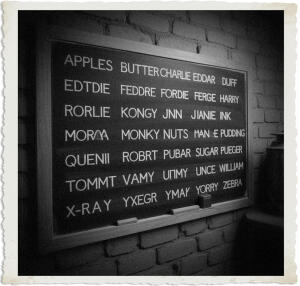 APPLES BUTTER CHARLIE EDDAR DUFF
EDTDIE FEDDRE FORDIE FERGE HARRY
RORLIE KONGY JNN JIANIE INK
MONKY NUTS PUDDING
QUENII ROBRT PUBAR SUGAR PUEGER
TOMMT VAMY UNCE WILLIAM
X-RAY YXEGR YMAY YORRY ZEBRA